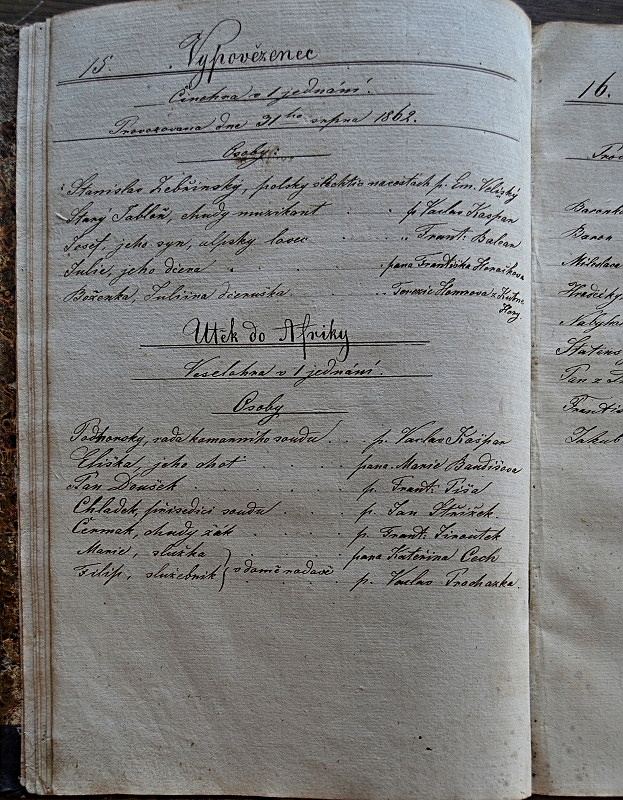 15. Vypovězenec
Činohra v 1 jednání.
Provozována dne 31ho srpna 1862.
Osoby:
Stanislav Zebřinsky, polsky šlechtic na cestách p. Em. Velišký
Starý Tableň, chudy muzikant . . . . p. Vaclav Kašpar
Josef, jeho syn, alpsky lovec . . . . „ Frant. Balcar
Julie, jeho dcera . . . . pana Františka Horačkova
Boženka, Juliina dceruška . . . . Terezie z Kutne
Hory.
Utěk do Afriky
Veselohra v 1 jednání.
Osoby
Podhorsky, rada komorního soudu . . p. Vaclav Kašpar
Eliška, jeho choť . . . . pana Marie Baudišova
Pan Doušek . . . . p. Frant. Tiša
Chladek, přísedící soudu . . . . p. Jan Střížek
Čermak, chudy žák . . . . p. Frant. Jiroutek
Marie, služka } . . . pana Kateřina Čech
Filip, služebník } v domě radově p. Vaclav Prochazka.
16.
Baronka
Baron
Miloslava
Hradecký
Franti
Jakub